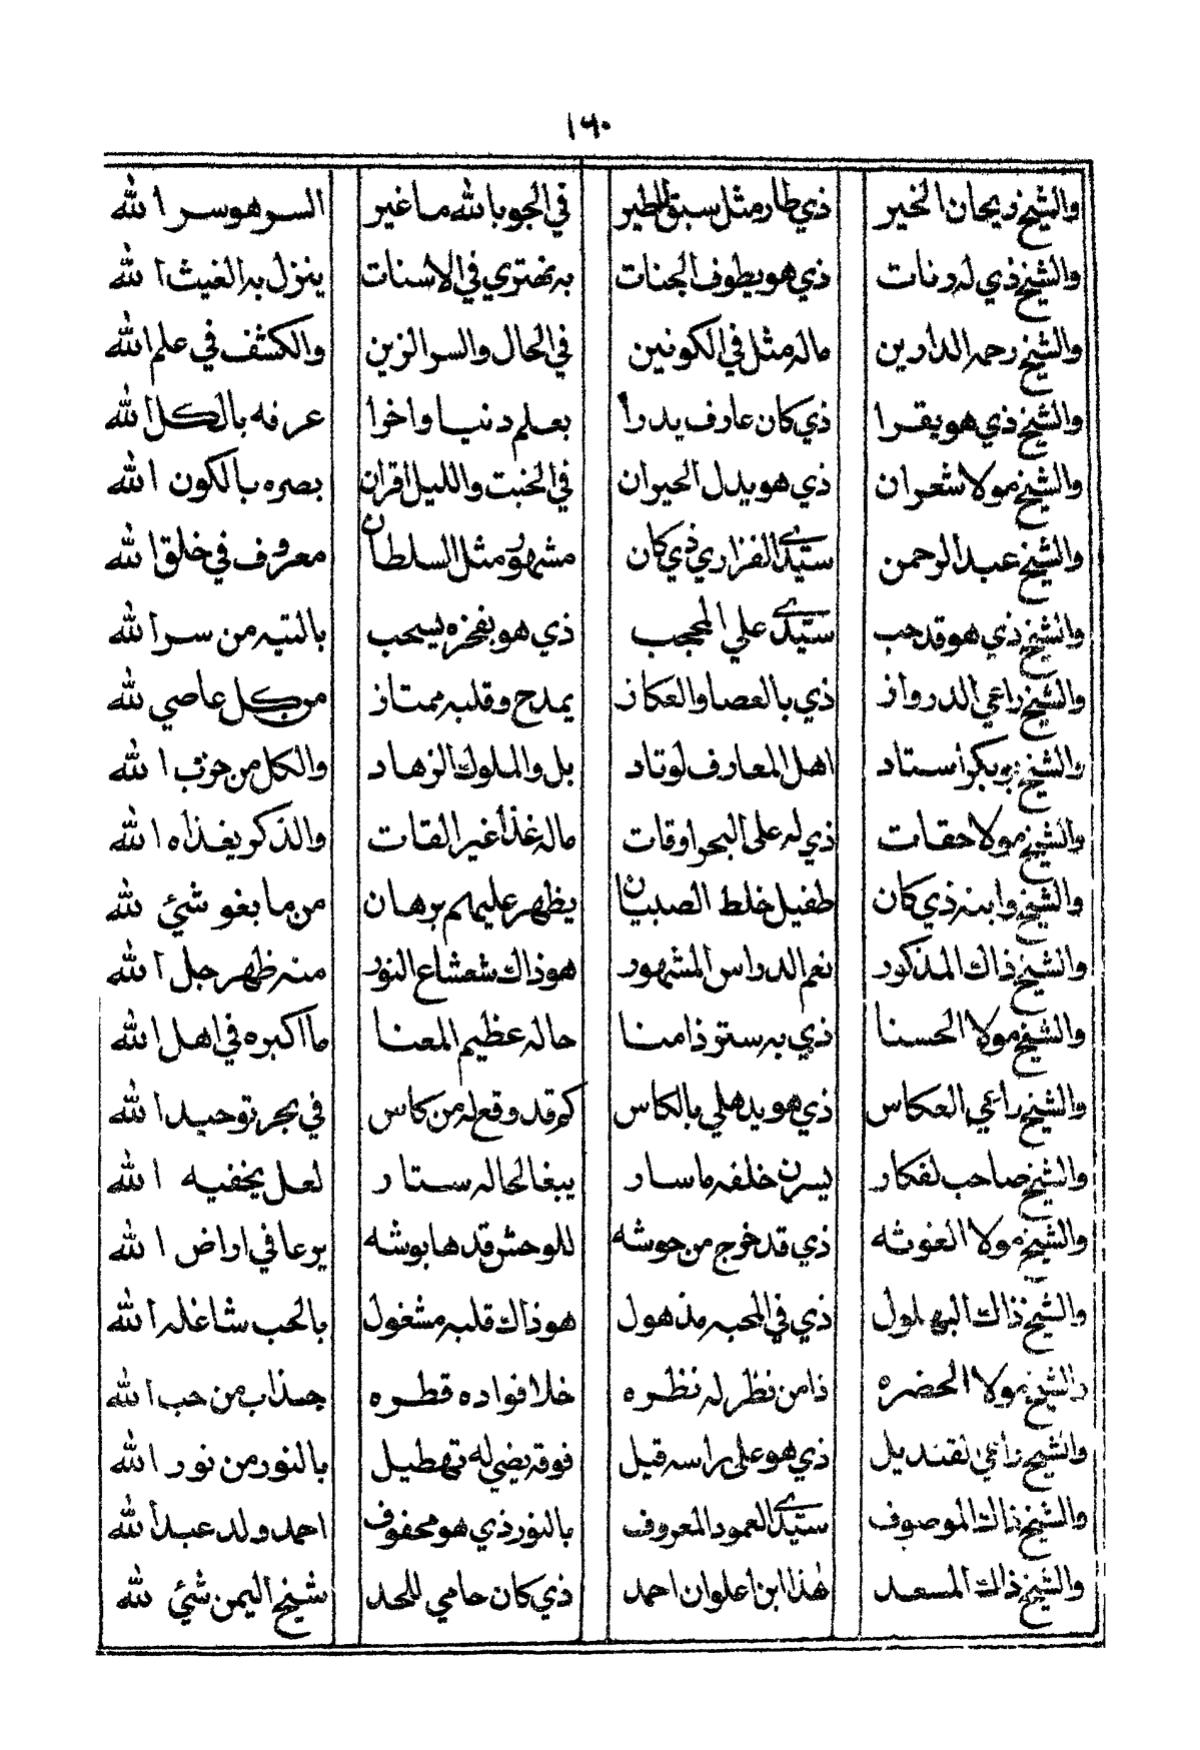 ١٦٠
والشيخ ريحان الخير ذي طار مثل سبق الطير في الجو بالله ما غير السر هو سر الله
والشيخ ذي له رنات ذي هو يطوف الجنات به نهتري في الاسنات ينزل به الغيث الله
والشيخ رحمه الدارين ماله مثل في الكونين في الحال والسر الزين والكشف في علم الله
والشيخ ذي هو يقرا ذي كان عارف يدرا بعلم دنيا واخرا عرفه بالكل الله
والشيخ مولا شعران ذي هو يدل الحيران في الخبت والليل اقران بصره بالكون الله
والشيخ عبد الرحمن سيدي الفزاري ذي كان مشهور مثل السلطان معروف في خلق الله
والشيخ ذي هو قد حب سيدي علي المحجب ذي هو بفخره يسحب بالتيه من سر الله
والشيخ راعي الدرواز ذي بالعصا والعكاز يمدح وقلبه ممتاز من كل عاصي لله
والشيخ بوبكر استاد اهل المعارف لوتاد بل والملوك الزهاد والكل من حزب الله
والشيخ مولا حقات ذي له على البحر اوقات ماله غذا غير القات والذكر يغذاه الله
والشيخ وابنه ذي كان طفيل خلط الصلبيان يظهر عليهم برهان من ما بغو شيء لله
والشيخ ذاك المذكور نعم الدراس المشهور هو ذاك شعشاع النور منه ظهر جل الله
والشيخ مولا الحسنا ذي به ستر ذا منا حاله عظيم المعنا ما اكبره في اهل الله
والشيخ راعي العكاس ذي هو يدهلي بالكاس كم قد وقع له من كاس في بحر توحيد الله
والشيخ صاحب لفكار يسرن خلفه ما سار يبغا لحاله ستار لعل يخفيه الله
والشيخ مولا الغوثه ذي قد خرج من حوشه للوحش قدها بوشه يرعا في اراض الله
والشيخ ذاك البهلول ذي في المحبه مذهول هو ذاك قلبه مشغول بالحب شاغله الله
والشيخ مولا الحضره ذا من نظر له نظره خلا فواده قطره جذاب من حب الله
والشيخ راعي لقنديل ذي هو على راسه قيل فوقه يضي له تهطيل بالنور من نور الله
والشيخ ذاك الموصوف سيدي العمود المعروف بالنور ذي هو محفوف احمد ولد عبد الله
والشيخ ذاك المسعد هذا ابن اعلوان احمد ذي كان حامي للحد شيخ اليمن شيء لله